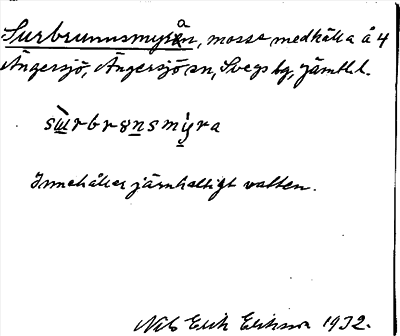 Surbrunnsmyrån, mosse med källa å 4
Ängersjö, Ängersjö sn, Svegs bg, Jämtl. l.
sùrbrønsmýra
Innehåller järnhaltigt vatten.
Nils Erik Eriksson 1932.